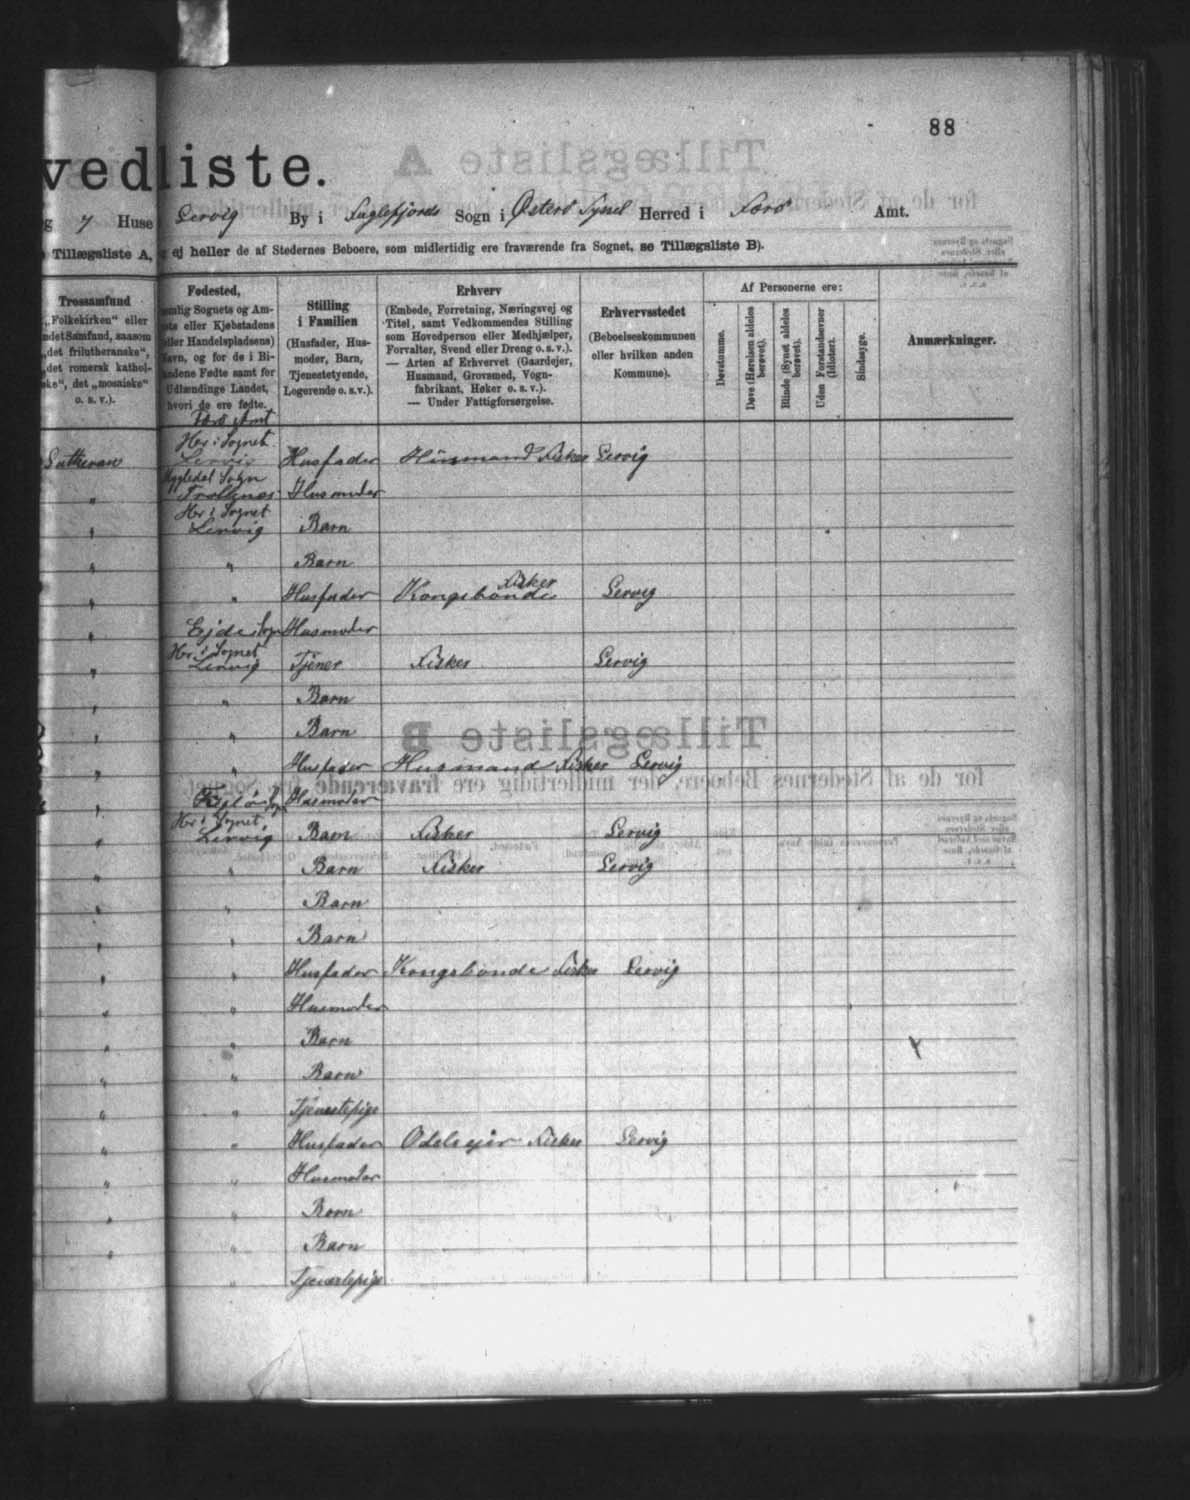 88
vedliste.
g 7 Huse Lervig By i Fuglefjords Sogn i Österö Syssel Herred i Færö Amt.
Tillægsliste A, ej heller de af Stedernes Beboere, som midlertidig ere fraværende fra Sognet, se Tillægsliste B).
Trossamfund
„Folkekirken“ eller
andet Samfund, saasom
„det frilutheranske“,
„det romersk kathol-
ske“, det „mosaiske“
o. s. v.).
Fødested,
nemlig Sognets og Am-
ets eller Kjøbstadens
eller Handelspladsens)
Navn, og for de i Bi-
landene Fødte samt for
Udlændinge Landet,
hvori de ere fødte.
Stilling
i Familien
(Husfader, Hus-
moder, Barn,
Tjenestetyende,
Logerende o. s. v.).
Erhverv
(Embede, Forretning, Næringsvej og
Titel, samt Vedkommendes Stilling
som Hovedperson eller Medhjælper,
Forvalter, Svend eller Dreng o. s. v.).
— Arten af Erhvervet (Gaardejer,
Husmand, Grovsmed, Vogn-
fabrikant, Høker o. s. v.).
— Under Fattigforsørgelse.
Erhvervsstedet
(Beboelseskommunen
eller hvilken anden
Kommune).
Af Personerne ere:
Døvstumme.
Døve (Hørelsen aldeles
berøvet).
Blinde (Synet aldeles
berøvet).
Uden Forstandsevner
(Idioter).
Sindssyge.
Anmærkninger.
Færö Amt
Her i Sognet
Lutheran Lervig Husfader Husmand Fisker Lervig
Mygledal Sogn
" Trollenæs Husmoder
Her i Sognet
" Lervig Barn
" " Barn
Fisker
" " Husfader Kongsbonde Lervig
" Ejde Sogn Husmoder
Her i Sognet
" Lervig Tjener Fisker Lervig
" " Barn
" " Barn
" " Husfader Husmand Fisker Lervig
" Husmoder
Her i Sognet
" Lervig Barn Fisker Lervig
" " Barn Fisker Lervig
" " Barn
" " Barn
" " Husfader Kongsbonde Fisker Lervig
" " Husmoder
" " Barn
" " Barn
" " Tjenestepige
" " Husfader Odelsejer Fisker Lervig
" " Husmoder
" " Barn
" " Barn
" Tjenestepige